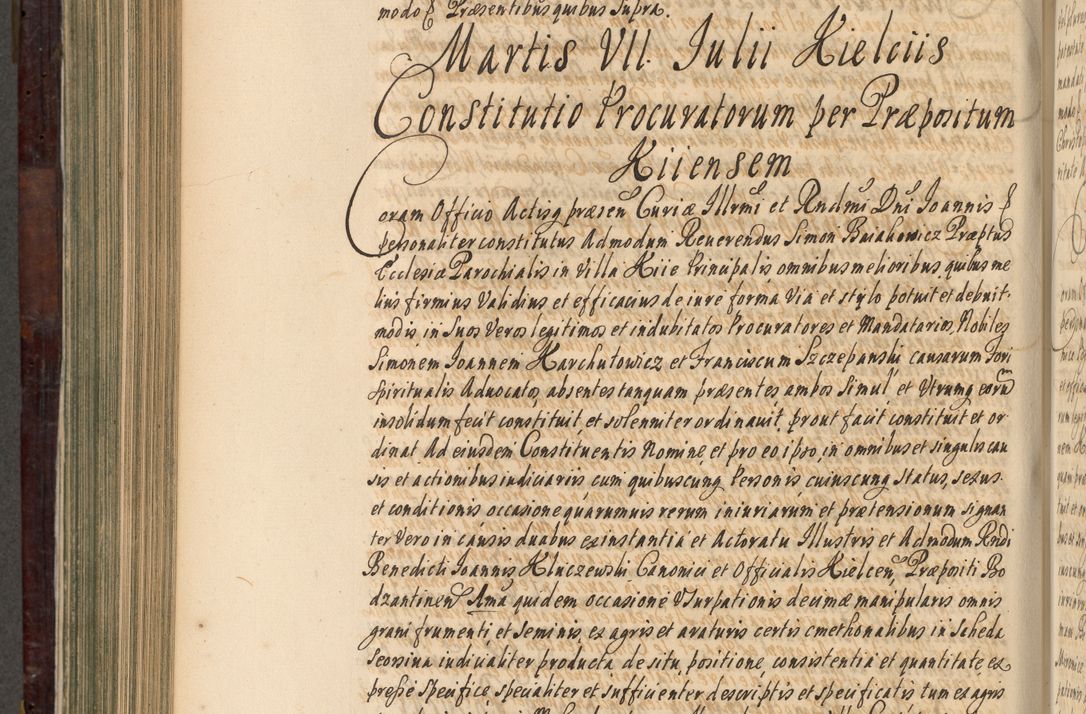 modo ꝑ Præsentibus quibus supra.
Martis VII. Julii Kielciis
Constitutio Procuratorum per Præpositum
Kiiensem
Coram Officio Actisq præsen Curiæ Illrmi et Rndmi Dni Joannis ꝑ
personaliter constitutus Admodum Reuerendus Simon Baiakowicz Præptus
Ecclesiæ Parochialis in Villa Kiie Principalis omnibus melioribus quibus me
lius firmius Validius et efficacius de iure forma Via et stylo potuit et debuit
modis, in Suos Veros legitimos et indubitatos Procuratores et Mandatarios, Nobiles
Simonem Joannem Harchutowicz et Franciscum Szczepanski causarum Fori
Spiritualis Aduocatos absentes tanquam præsentes, ambos Simul, et Utrumq eorum
insolidum fecit constituit, et solenniter ordinauit, prout facit constituit et or
dinat Ad eiusdem Constituentis Nomine, et pro eo ipso, in omnibus et singulis cau
sis et actionibus indiciariis, cum quibuscunq Personis cuiuscunq Status, sexus
et conditionis occasione quarumuis rerum iniuriarum et prætensionum signan
ter Vero in causis duabus ex instantia et Actoratu Illustris et Admodum Rndi
Benedicti Joannis Kluczewski Canonici et Officialis Kielcen, Præpositi Bo
dzantinen Ima quidem occasione Usurpationis decimæ manipularis omnis
grani frumenti, et seminis, ex agris et araturis certis cmethonalibus in Scheda
seorsiua iudicialiter producta de situ, positione, consistentia et quantitate ex
presse Specifice, specialiter et sufficienter descriptis et specificatis tum ex agris